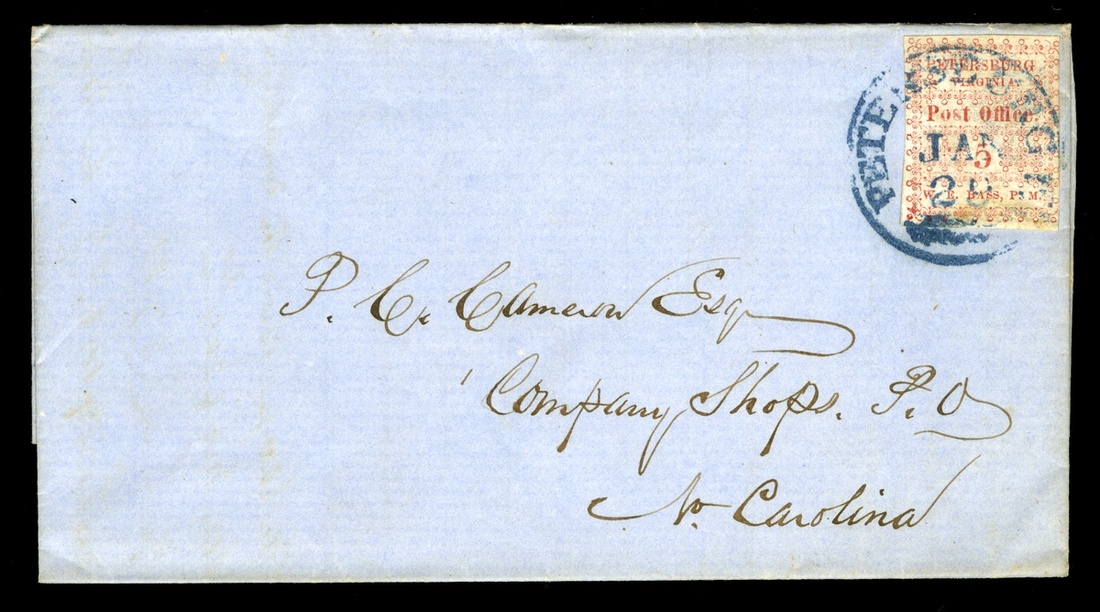 PETERSBURG
VIRGINIA
Post Office
5
W. E. BASS, P. M.
PETERSBURG
JAN
P. C. Cameron Esq
Company Shops. P. O
No. Carolina